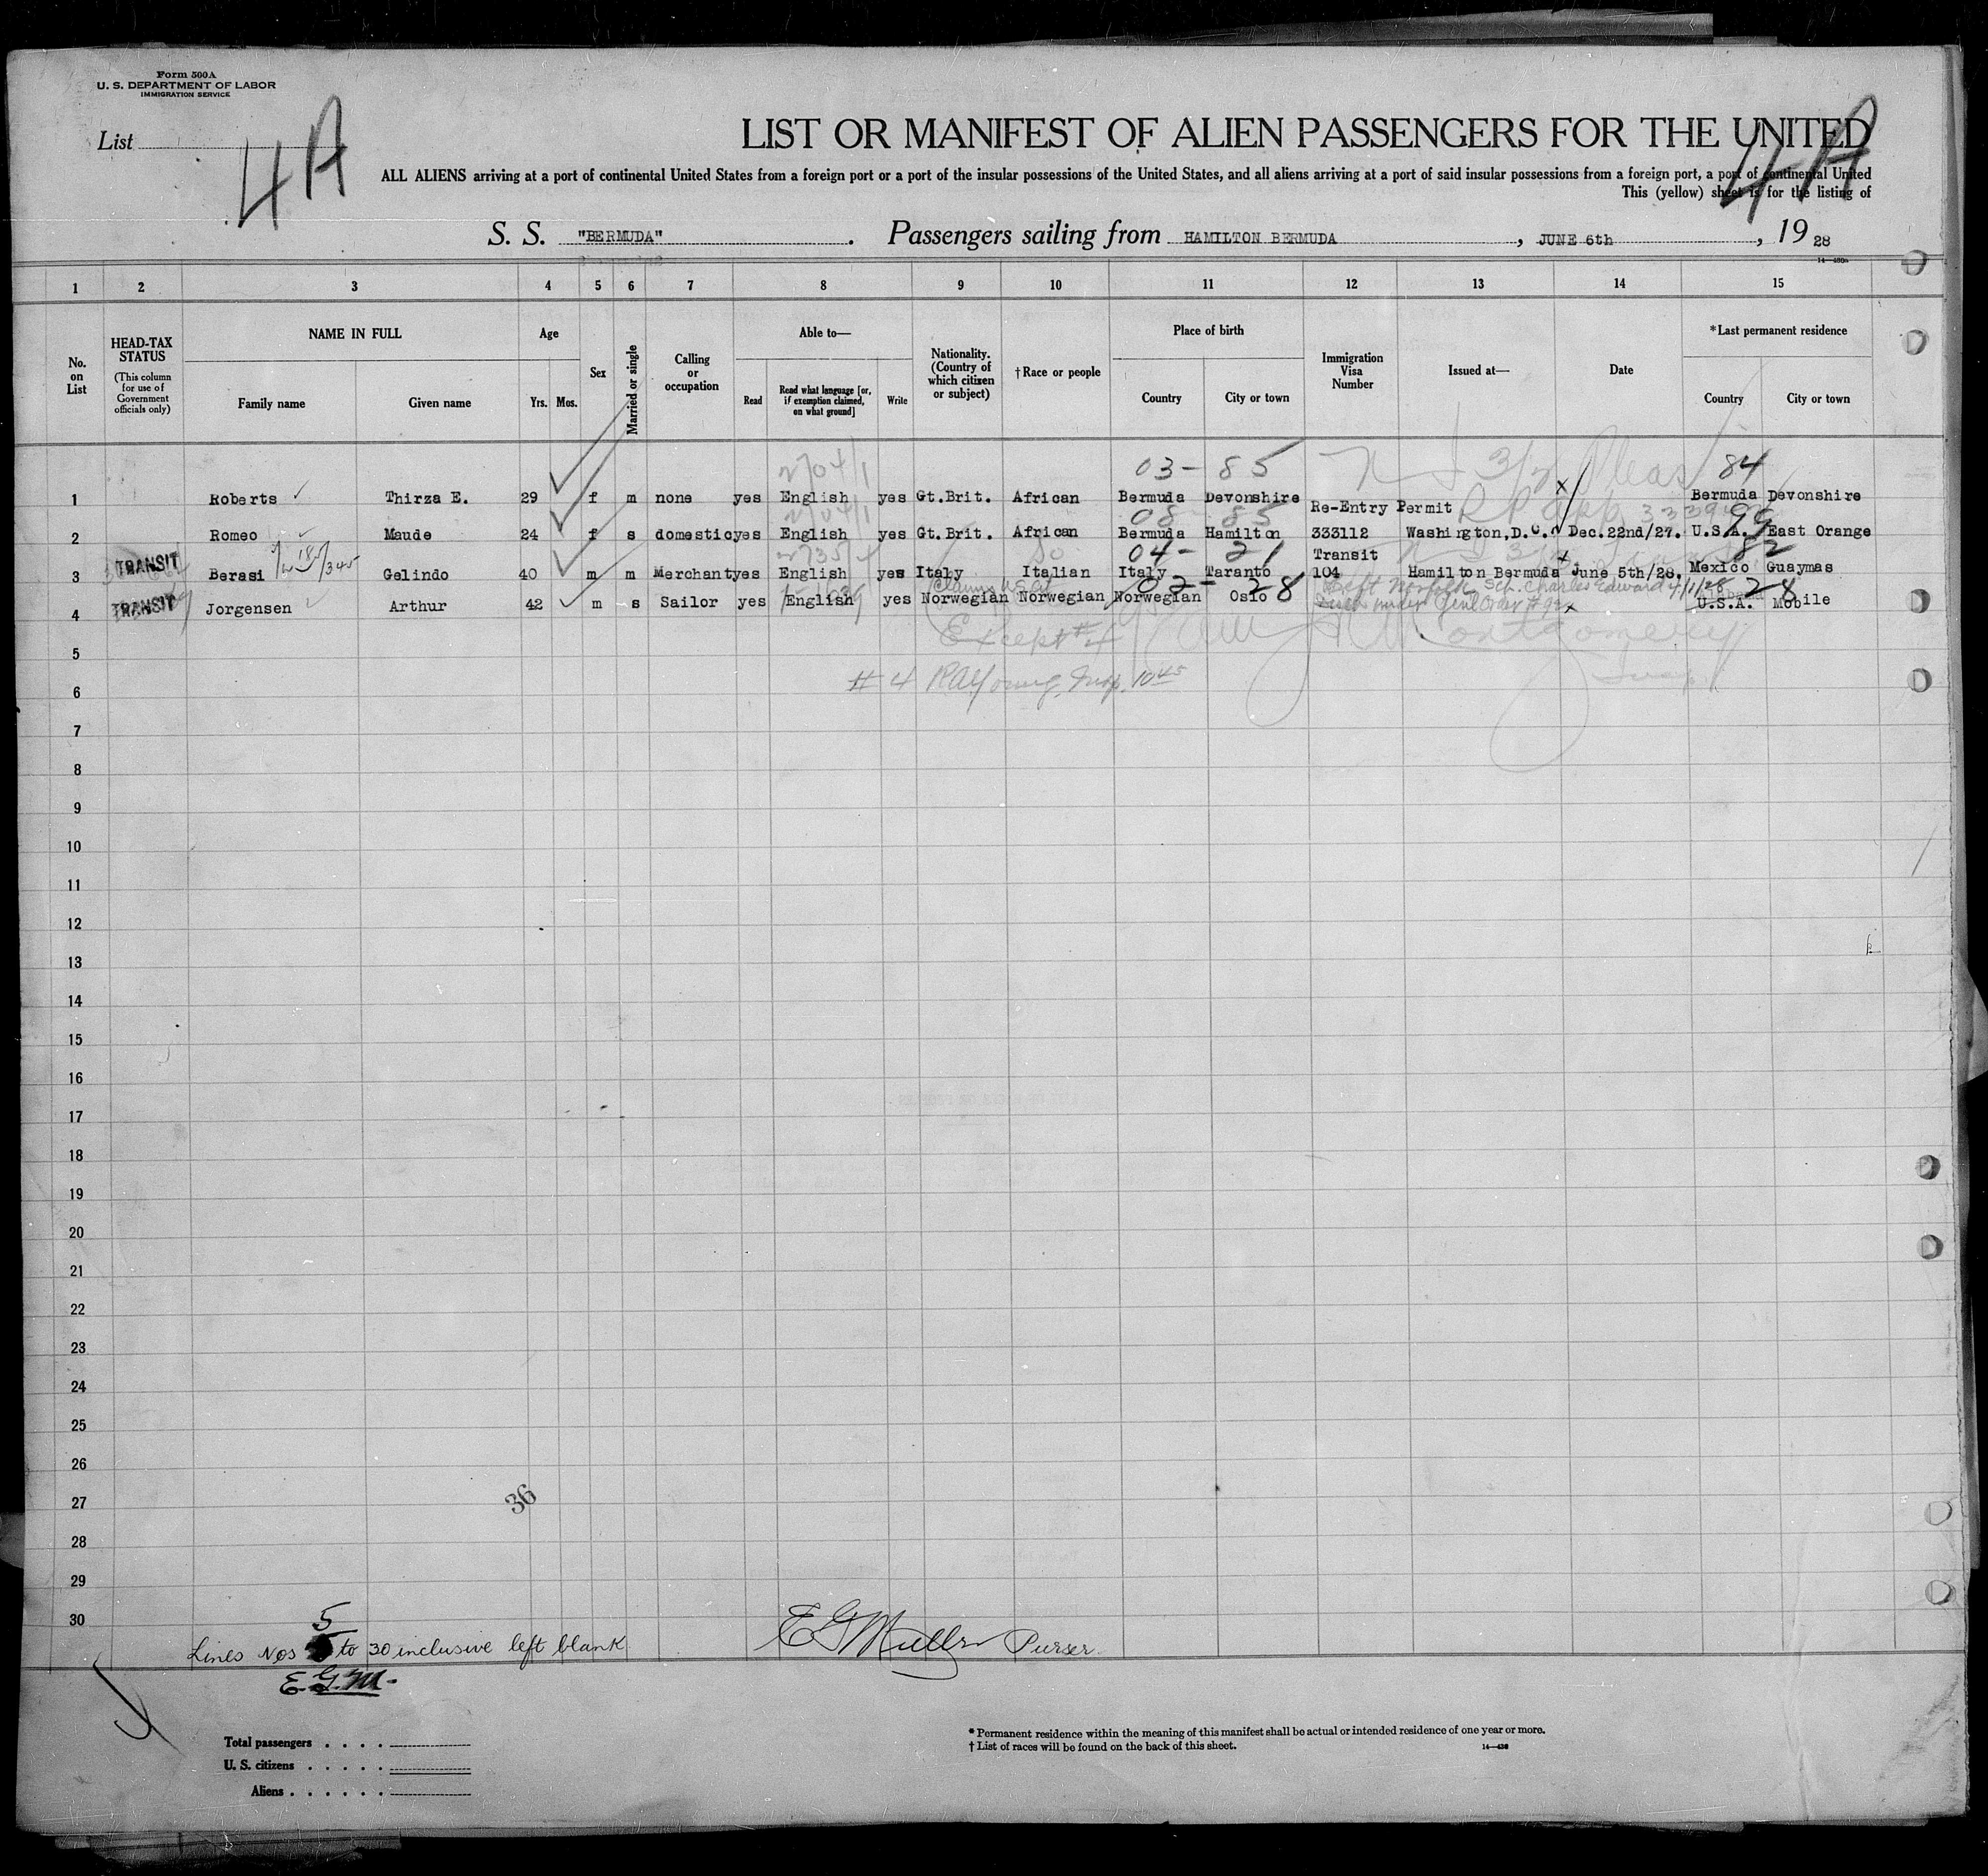 Form 500A
U. S. DEPARTMENT OF LABOR
IMMIGRATION SERVICE
List
4A
4A
LIST OR MANIFEST OF ALIEN PASSENGERS FOR THE UNITED
ALL ALIENS arriving at a port of continental United States from a foreign port or a port of the insular possessions of the United States, and all aliens arriving at a port of said insular possessions from a foreign port, a port of continental United
This (yellow) sheet is for the listing of
S. S. "BERMUDA". Passengers sailing from HAMILTON BERMUDA, JUNE 6th, 1928
1 2 3 4 5 6 7 8 9 10 11 12 13 14 15
No. on List
HEAD-TAX STATUS
(This column for use of Government officials only)
NAME IN FULL
Family name Given name
Age
Yrs. Mos.
Sex
Married or single
Calling or occupation
Able to—
Read Read what language [or, if exemption claimed, on what ground] Write
Nationality. (Country of which citizen or subject)
†Race or people
Place of birth
Country City or town
Immigration Visa Number
Issued at—
Date
*Last permanent residence
Country City or town
03 - 85 84
1 Roberts Thirza E. 29 f m none yes English yes Gt.Brit. African Bermuda Devonshire Bermuda Devonshire
Re-Entry Permit
08 - 85 99
2 Romeo Maude 24 f s domestic yes English yes Gt.Brit. African Bermuda Hamilton 333112 Washington, D.C. Dec.22nd/27. U.S.A. East Orange
04 - 21 Transit 82
3 TRANSIT Berasi Gelindo 40 m m Merchant yes English yes Italy Italian Italy Taranto 104 Hamilton Bermuda June 5th/28. Mexico Guaymas
02 - 28 28
4 TRANSIT Jorgensen Arthur 42 m s Sailor yes English yes Norwegian Norwegian Norwegian Oslo U.S.A. Mobile
Left Norfolk Sch. Charles Edward
Except #4
5
6 #4 Insp. 10 45
7
8
9
10
11
12
13
14
15
16
17
18
19
20
21
22
23
24
25
26
27
36
28
29
30
5
Lines Nos to 30 inclusive left blank
E.G.M.
E G Muller Purser.
Total passengers
U. S. citizens
Aliens
* Permanent residence within the meaning of this manifest shall be actual or intended residence of one year or more.
† List of races will be found on the back of this sheet.